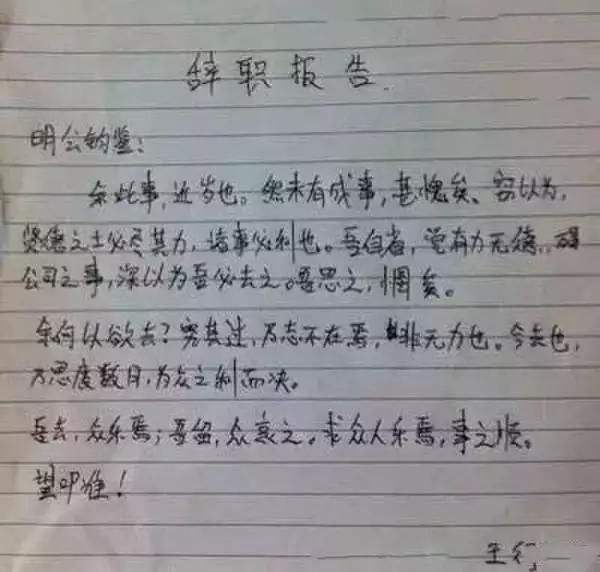 辞职报告
明公钧鉴：
余此事，近岁也。然未有成事，甚愧矣。窃以为，
贤德之士必尽其力，诸事必利也。吾自省，觉有力无德，
公司之事，深以为吾必去之。吾思之，惘矣。
余何以欲去？究其过，乃志不在焉，非无力也。今去也，
乃思度数月，为众之利而决。
吾去，众乐焉；吾留，众哀之。求众人乐焉，事之顺。
望叩准！
王行